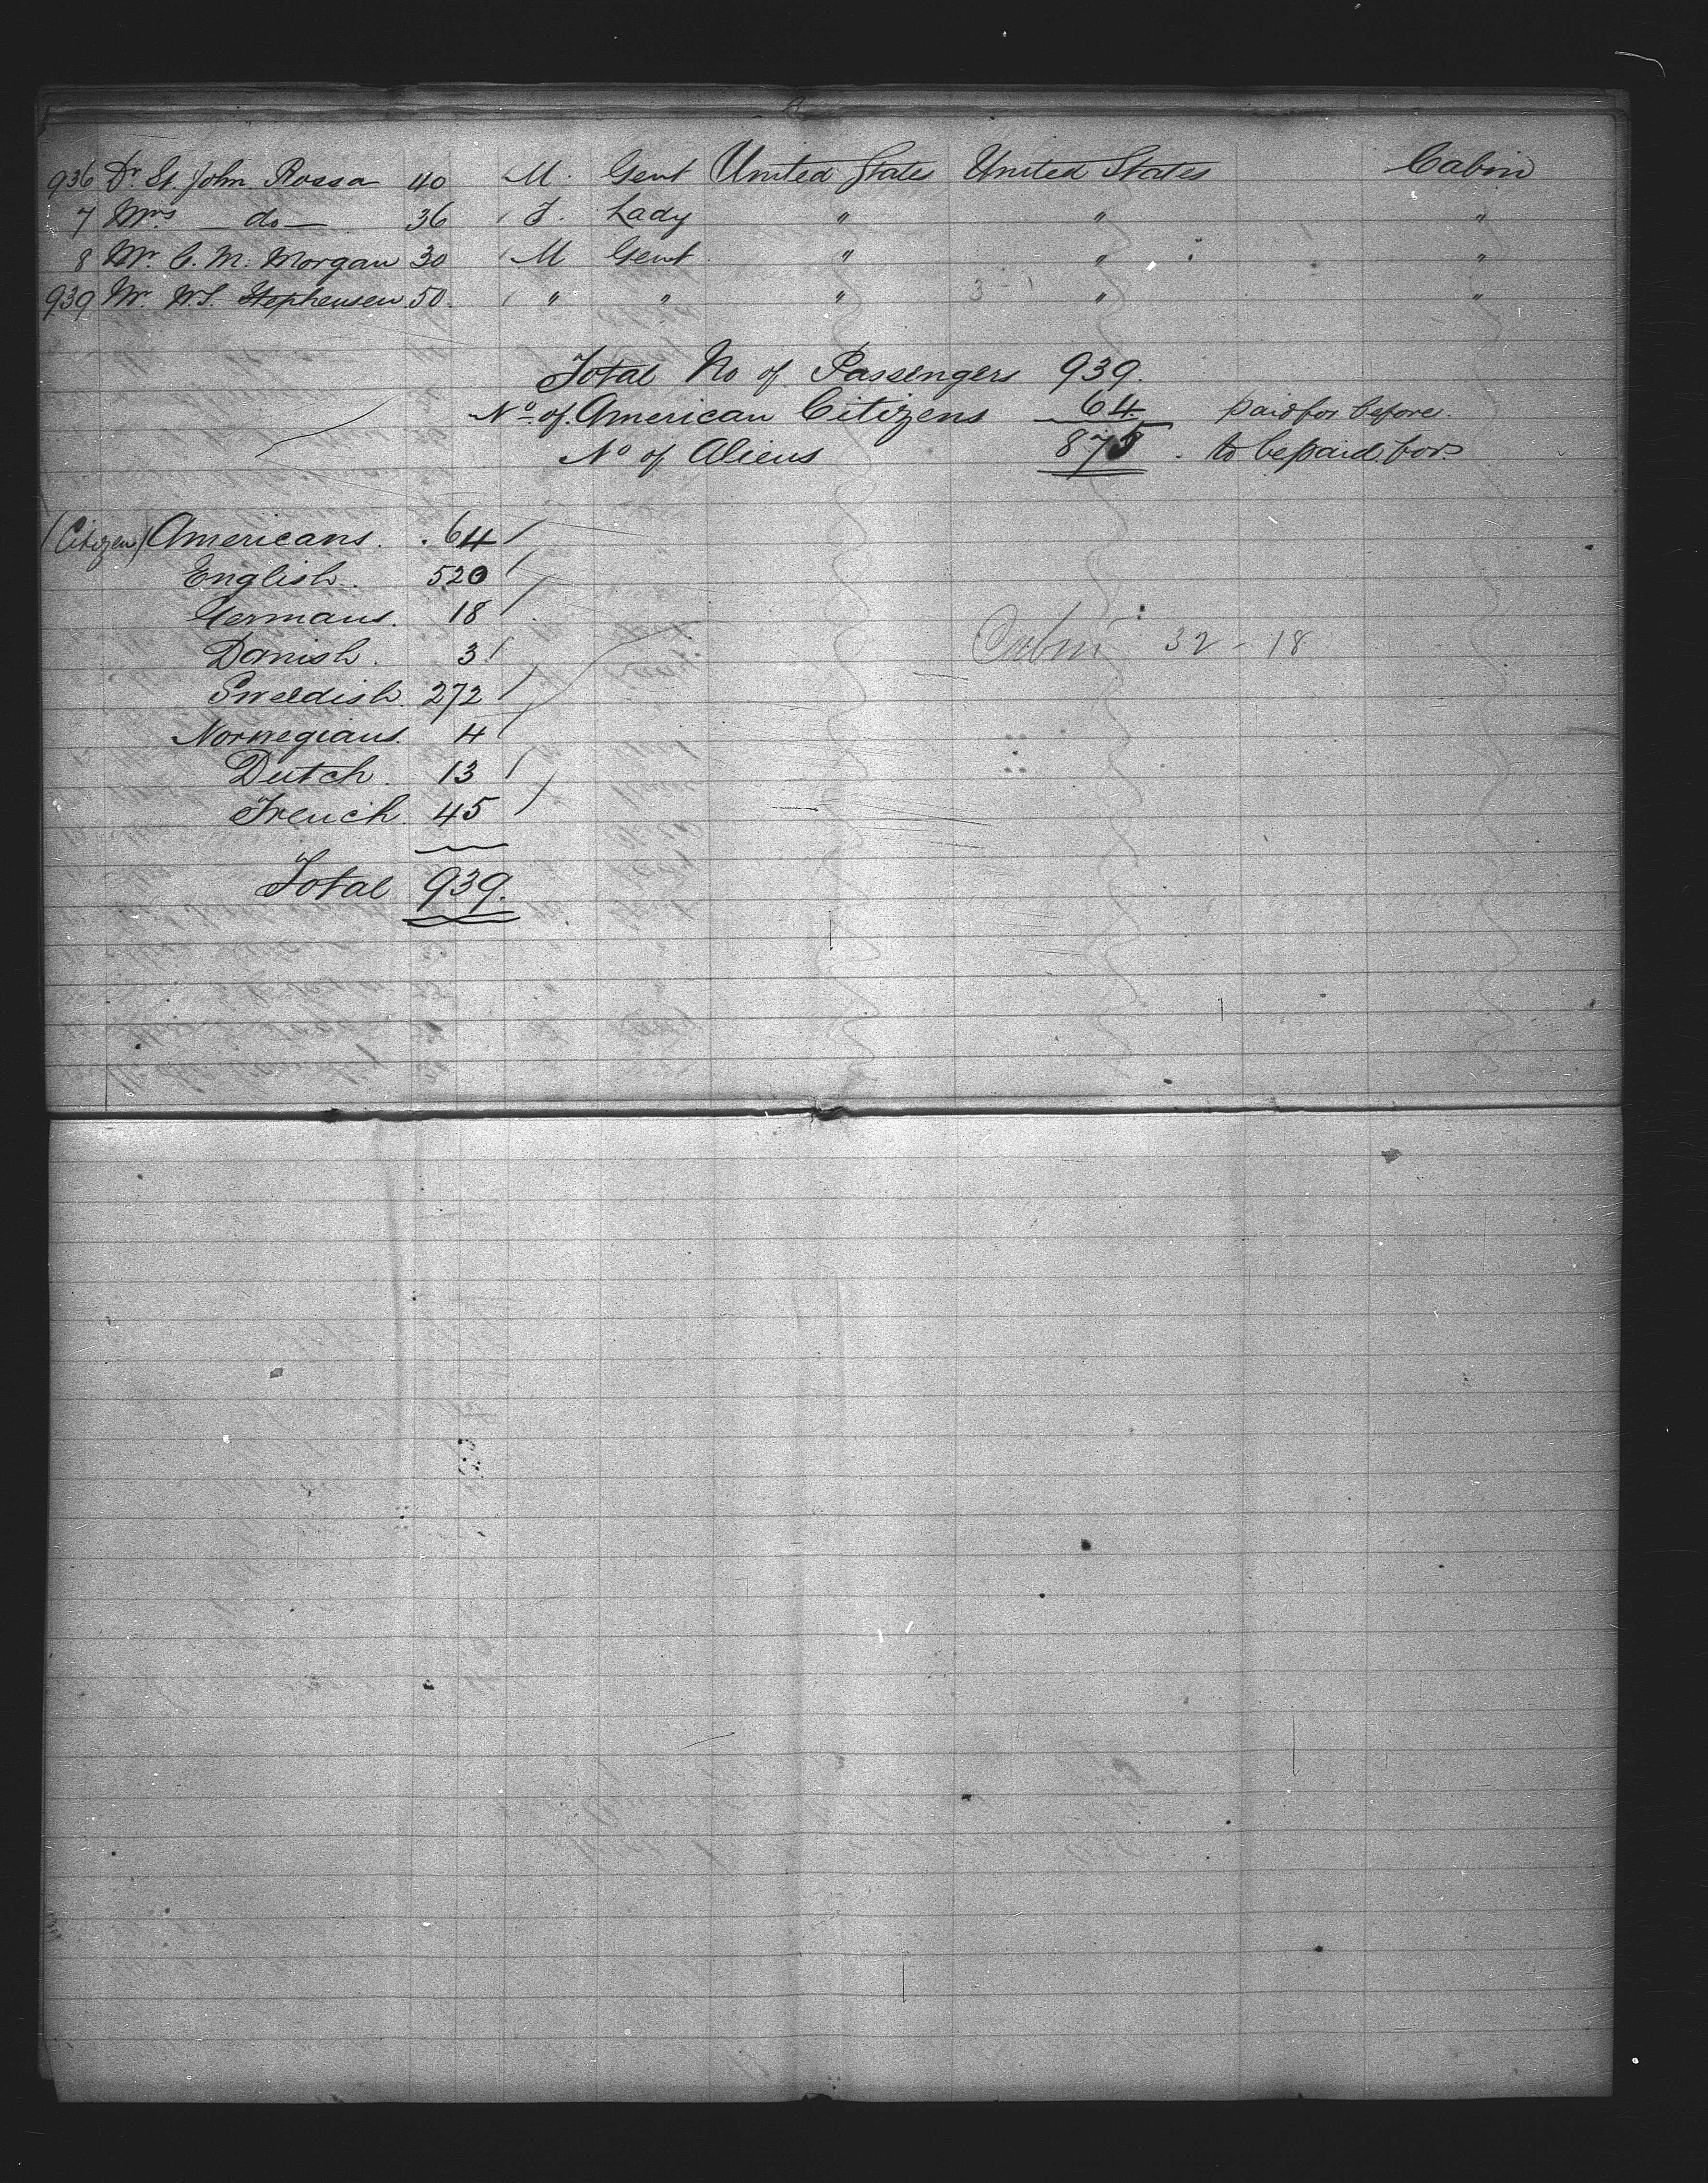 936 Dr. St. John Roosa 40 M. Gent United States United States Cabin
7 Mrs. — do — 36 F. Lady " " "
8 Mr. C. M. Morgan 30 M Gent " " "
939 Mr. W.S. Stephensen 50 " " " " "
3 - 1
Total No of Passengers 939.
No. of American Citizens 64 paid for before.
No of Aliens 875. to be paid for.
(Citizen) Americans. 64
English. 520
Germans. 18
Danish. 3
Sweedish. 272
Norwegians. 4
Dutch. 13
French. 45
Total 939.
Cabin 32 - 18